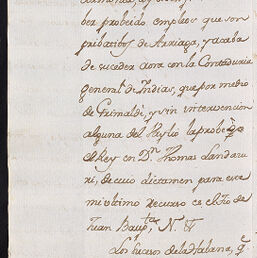 ber probeido empleos que son
pribatibos de Arriaga, y acaba
de suceder aora con la Contaduria
general de Indias, que por medio
de Grimaldi, y sin intervencion
alguna del Baylio la probeyò
el Rey en Dn. Thomas Landazu
ri, de cuio dictamen para este
mi ultimo recurso es el Tio de
Juan Baupta. N. W
Los sucesos de la Habana, q.e